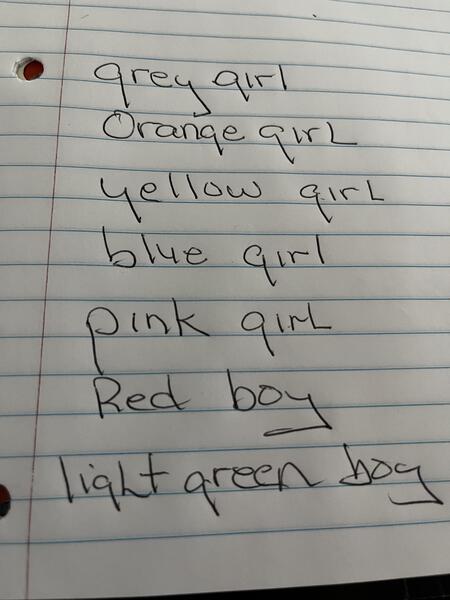 grey girl
Orange girL
yellow girL
blue girl
pink girL
Red boy
light green boy